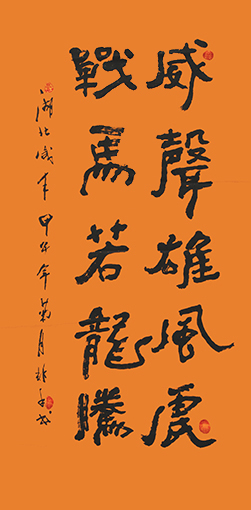 威聲雄風虎
戰馬若龍騰
湖北咸丰甲午年菊月